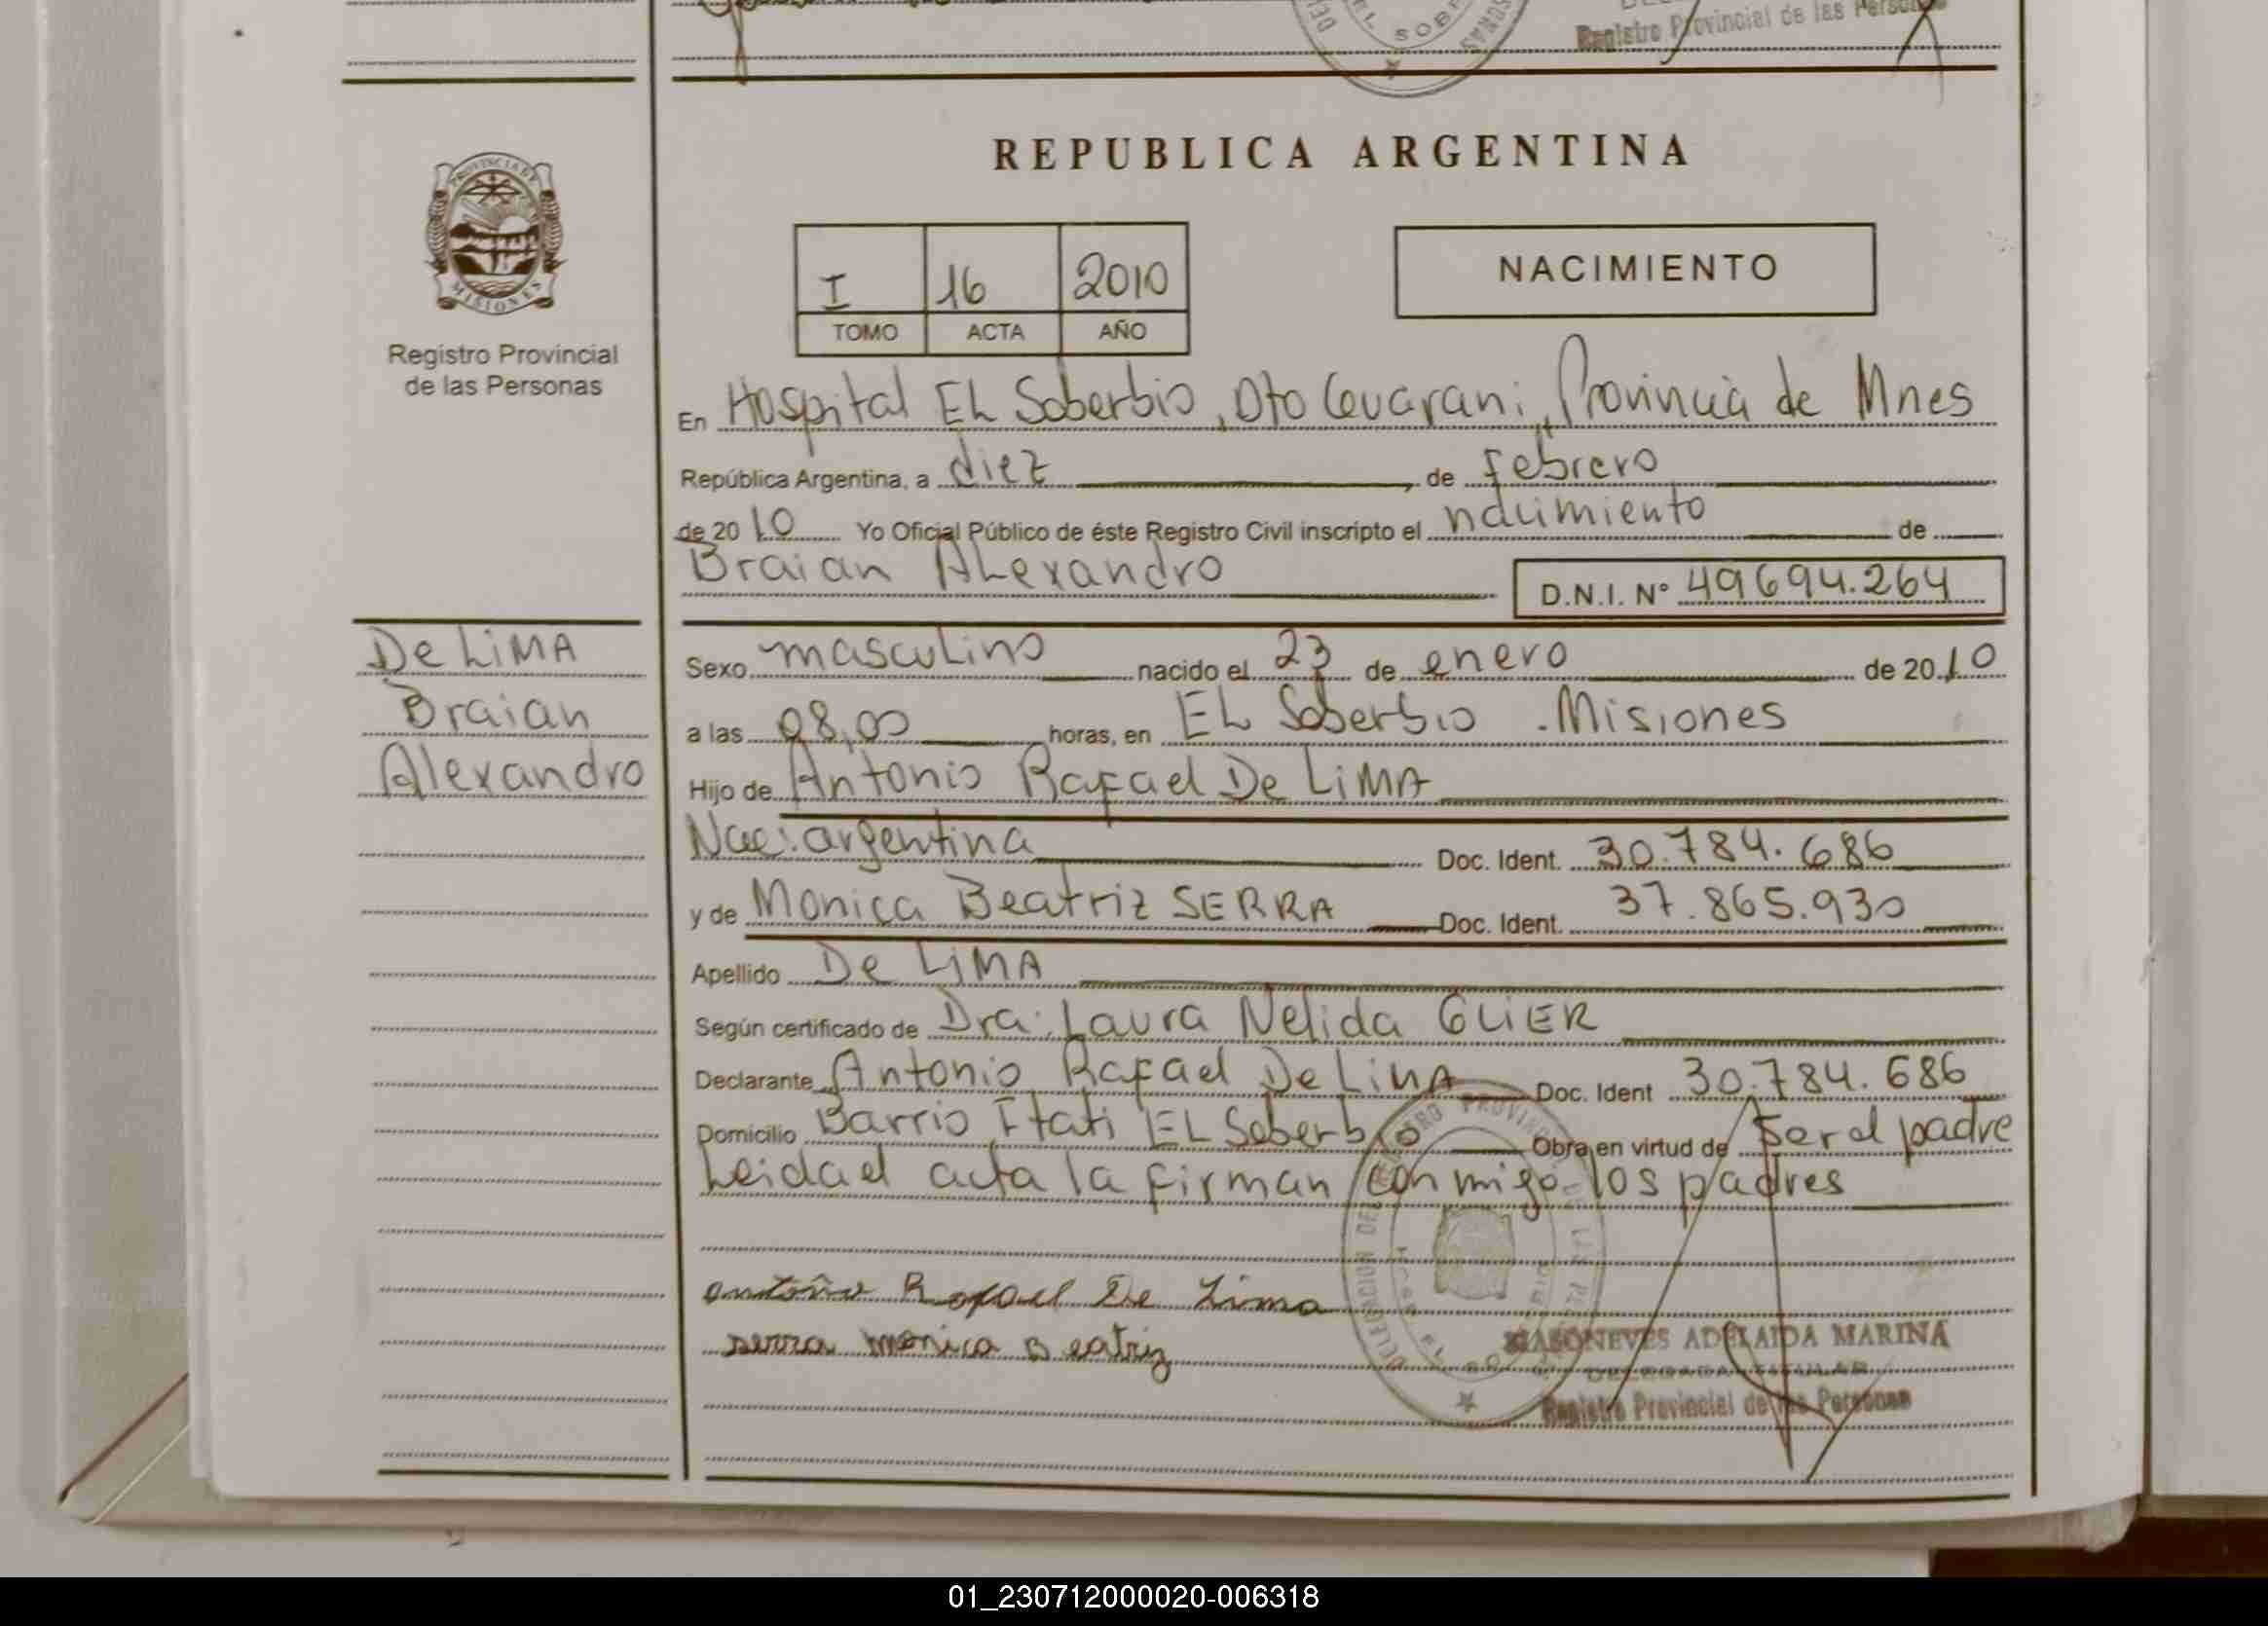 EL SOB
Registro Provincial de las Personas
REPUBLICA ARGENTINA
PROVINCIA DE MISIONES
Registro Provincial
de las Personas
I 16 2010
TOMO ACTA AÑO
NACIMIENTO
En Hospital EL Soberbio, Dto Guarani, Provincia de Mnes
República Argentina, a diez de febrero
de 2010 Yo Oficial Público de éste Registro Civil inscripto el nacimiento de
Braian Alexandro D.N.I. Nº 49694.264
De LiMA
Braian
Alexandro
Sexo masculino nacido el 23 de enero de 2010
a las 08,00 horas, en EL Soberbio - Misiones
Hijo de Antonio Rafael De LiMA
Nac: argentina Doc. Ident. 30.784.686
y de Monica Beatriz SERRA Doc. Ident. 37.865.930
Apellido De LiMA
Según certificado de Dra: Laura Nelida GLIER
Declarante Antonio Rafael De LiMA Doc. Ident 30.784.686
Domicilio Barrio Itati EL Soberbio Obra en virtud de Ser el padre
Leida el acta la firman conmigo los padres
antonio Rafael De Lima
serra monica Beatriz
MASONEVES ADELAIDA MARINA
DELEGADA TITULAR
Registro Provincial de las Personas
01_230712000020-006318